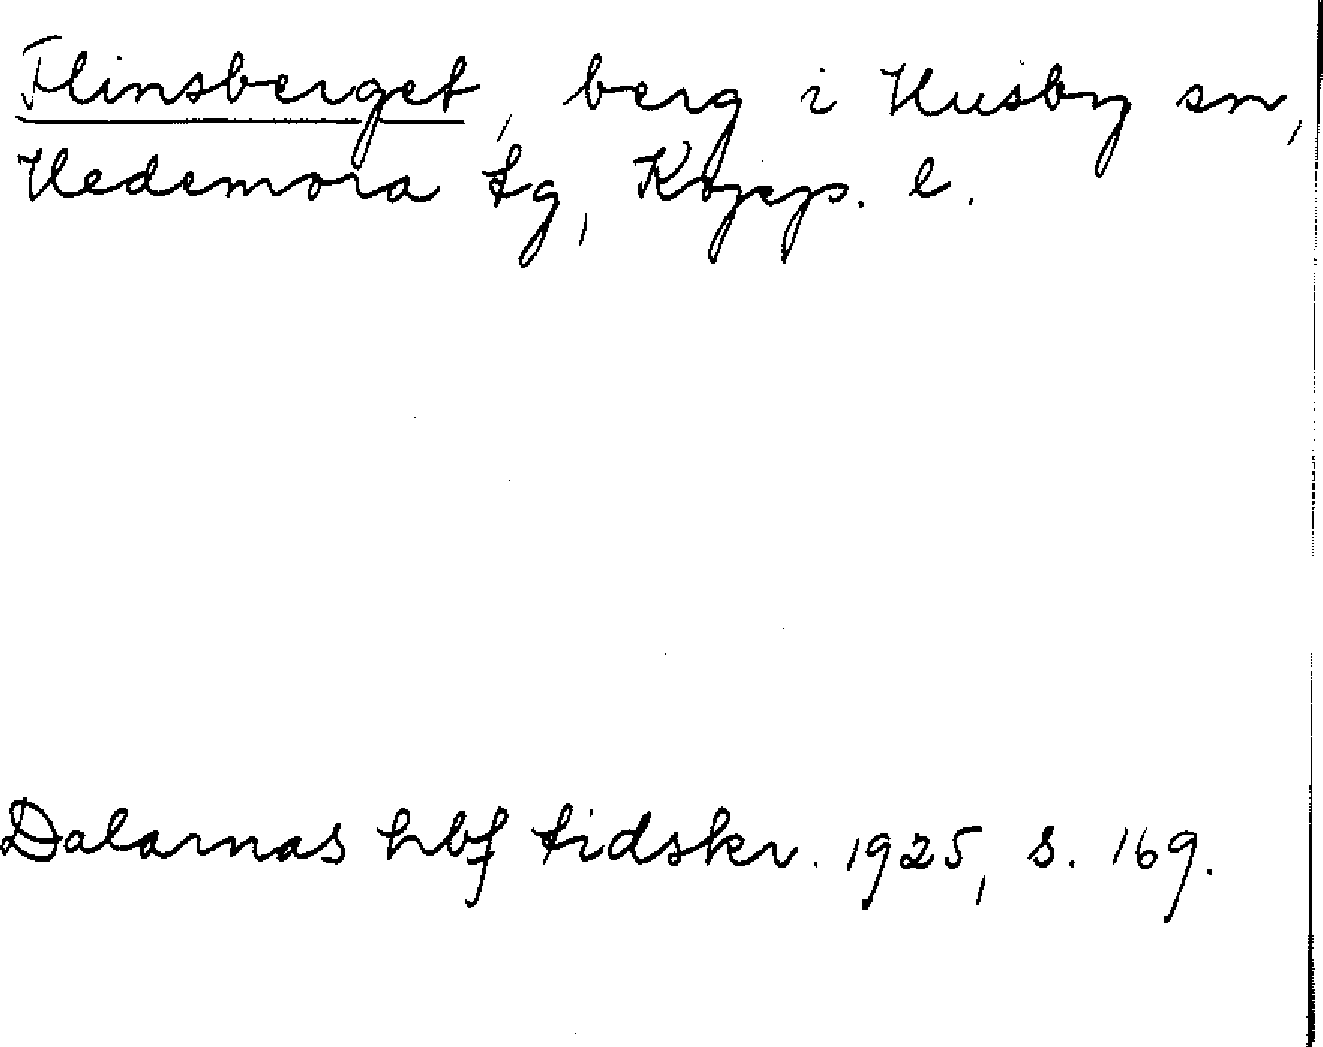 Flinsberget, berg i Husby sn,
Hedemora tg, Kopp. l.
Dalarnas hbf tidskr. 1925, s. 169.